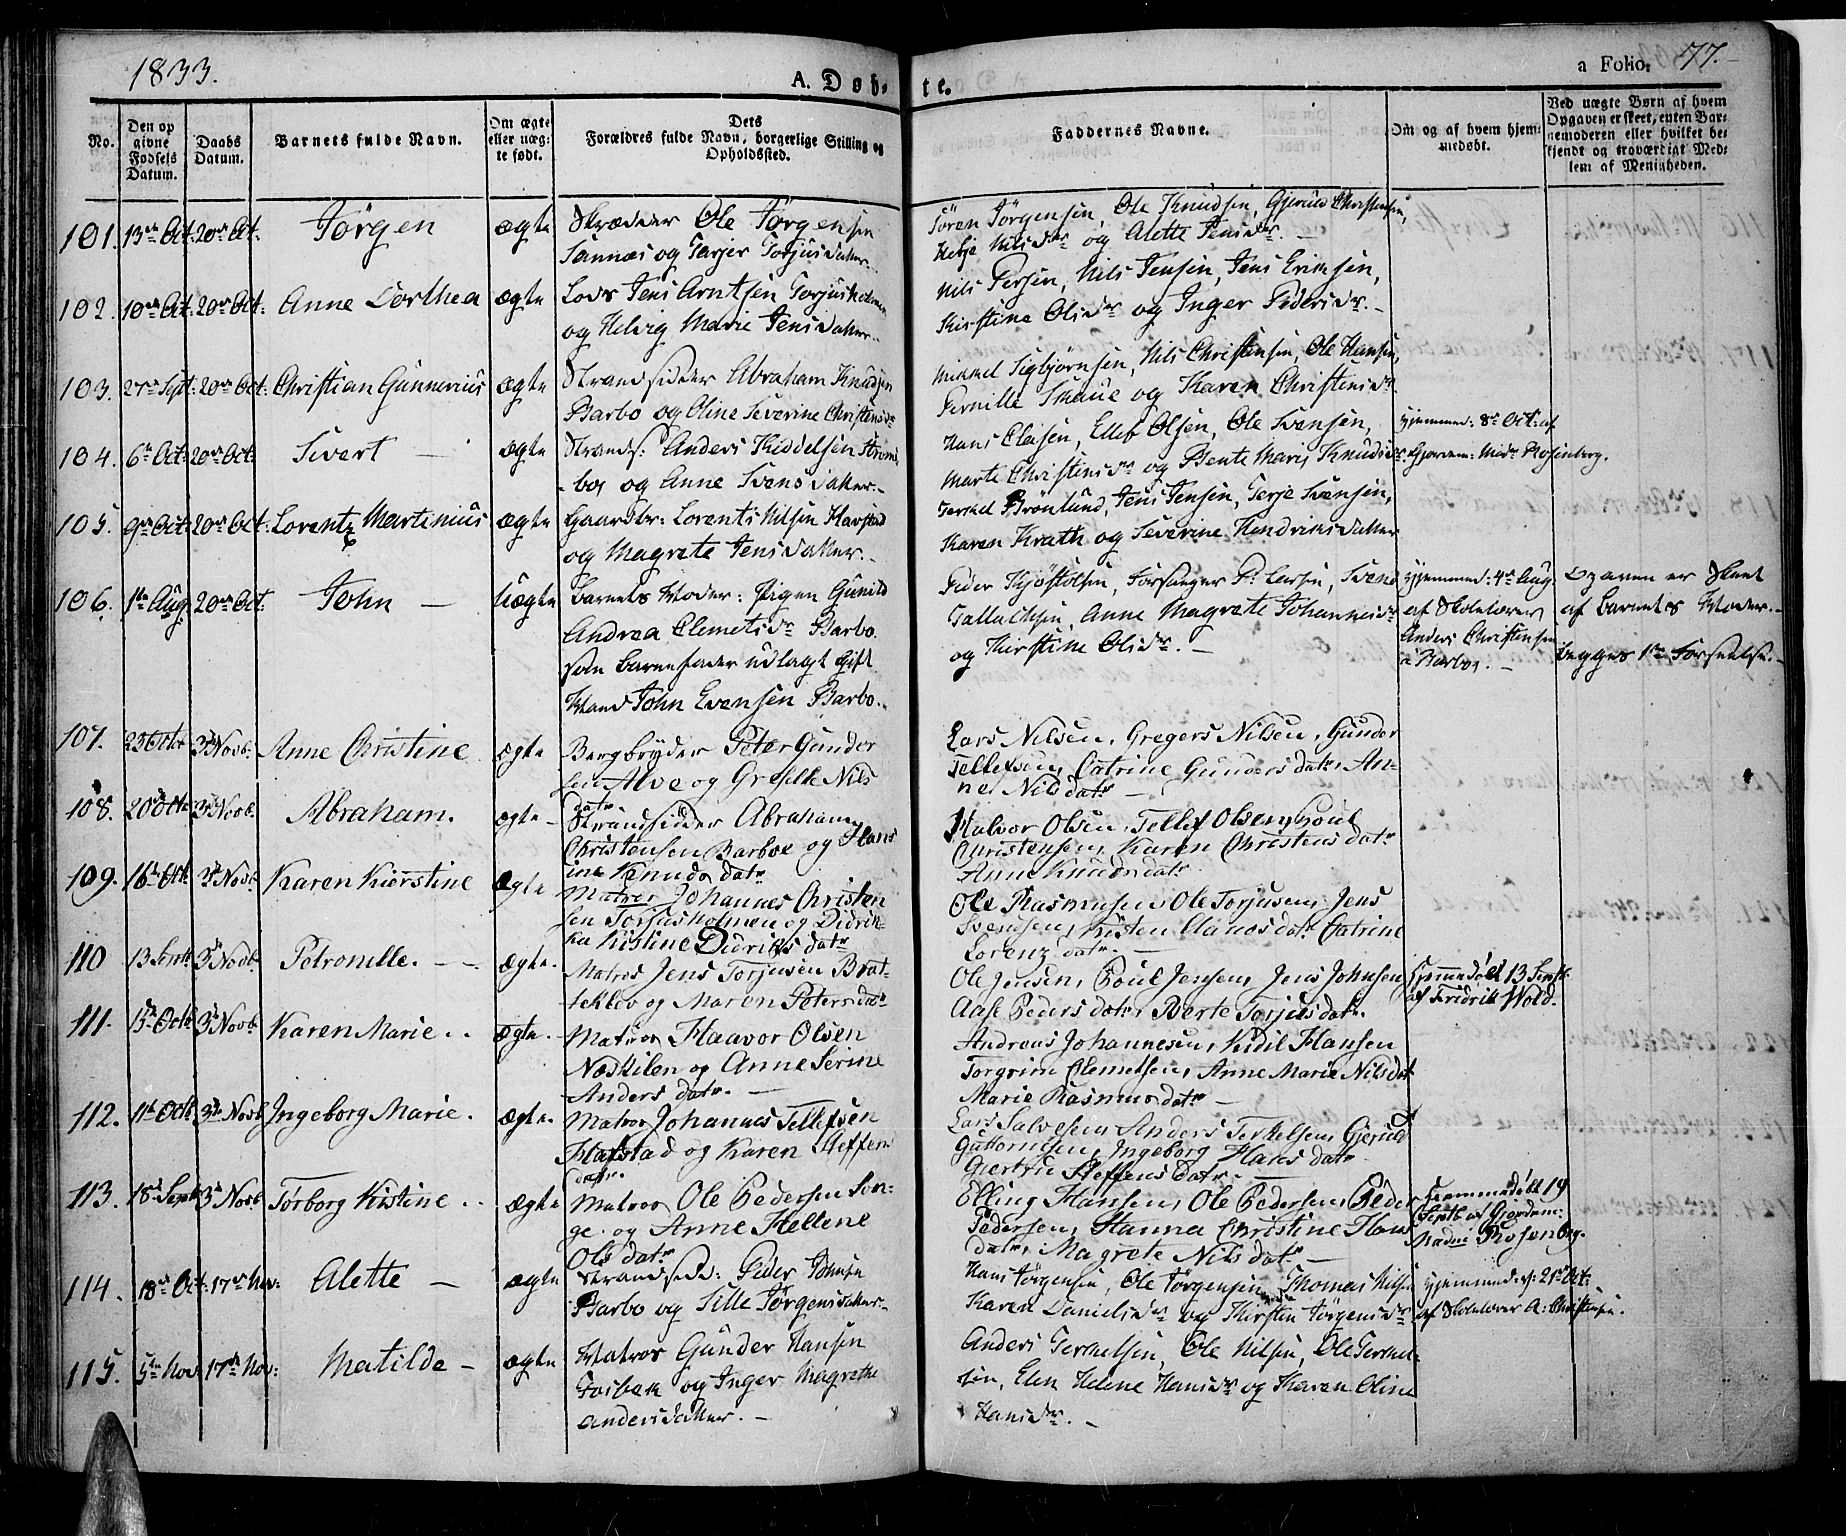 1833.
A. Døbte.
a Folio. 77.
No.
Den opgivne Fødsels Datum.
Daabs Datum.
Barnets fulde Navn.
Om ægte eller uægte født.
Dets Forældres fulde Navn, borgerlige Stilling og Opholdssted.
Faddernes Navne.
Om og af hvem hjemmedøbt.
Ved uægte Børn af hvem Opgaven er skeet, enten Barnemoderen eller hvilket bekjendt og troværdigt Medlem af Menigheden.
101. 13de Oct. 20de Oct: Jørgen ægte Skrædder Ole Jørgensen
Sannæs og Tarjer Torjusdatter.
Søren Jørgensen, Ole Knudsen, Gjerul Christensen,
Helje Nilsdr og Alette Jensdr. -
102. 10de Oct. 20de Oct: Anne Dorthea ægte Lods Jens Arntsen Torjusholmen
og Helvig Marie Jensdatter.
Nils Persen, Nils Jensen, Jens Eriksen,
Kirstine Olsdr og Inger Pedersdr. -
103. 27de Sept: 20de Oct: Christian Gunnerius ægte Strandsidder Abraham Knudsen
Barbo og Oline Severine Christensdr
Mikkel Sigbjørnsen, Nils Christensen, Ole Hansen,
Pernille Skaue og Karen Christensdr
104. 6te Oct: 20de Oct: Sivert - ægte Strands: Anders Kiddelsen Strøms
boe og Anne Svensdatter. -
Hans Olsen, Ellef Olsen, Ole Svensen,
Marte Christensdr og Bente Marie Knudsdr.
hjemmed: 8de Oct: af
Gjordem: Md: Rosenberg.
105. 9de Oct: 20de Oct: Lorentz Martinius ægte Gaardbr: Lorents Nilsen Havstad
og Magrete Jensdatter. -
Terkel Brønlund, Jens Jensen, Terje Svensen,
Karen Krath og Severine Hendriksdatter
106. 1te Aug. 20de Oct. John - Uægte Barnets Moder: Pigen Gunild
Andrea Clemetsdr Barbo.
som Barnefader udlagt Gift
Mand John Evensen Barbo.
Peder Kjøstolsen, Forsanger P. Larsen, Svend
Tallaksen, Anne Magrete Johannesdr
og Kirstine Olsdr. -
Hjemmed: 4de Aug
af Skolelærer
Anders Christensen
a Barbo. -
Opgaven er skeet
af Barnets Moder. -
begges 1te Forseelse. -
107. 23 Octbr 3d Novb: Anne Christine ægte Bergbryder Peter Gunder
sen Alve og Grethe Nils
datr.
Lars Nilsen, Gregers Nilsen, Gunder
Tellefsen, Catrine Gundersdatr, An-
ne Nilsdatr -
108. 20de Octb 3d Novb. Abraham. ægte - Strandsidder Abraham
Christensen Barboe og Hans
ine Knudsdatr
Halvor Olsen, Tellef Olsen, Poul
Christensen, Karen Christensdatr
Anne Knudsdatr
109. 16de Octb 3d Novb: Karen Kierstine Ægte Matros Johannes Christen
sen Torjusholmen og Didrik-
ka Kistine Didriksdatr
Ole Rasmusen, Ole Torjusen, Jens
Svendsen, Kisten Hansdatr Catrine
Lorenzdatr. -
110 13 Septb 3d Novb. Petronille. - ægte. Matros Jens Torjusen Brat-
teklev og Maren Petersdatr
Ole Jensen, Poul Jensen, Jens Johnsen
Aase Pedersdatr, Berte Torjusdatr.
Hjemmedøbt 13 Septb
af Fridrik Wold.
111. 15de Octb 3d Novb Karen Marie. ægte. Matros Haavor Olsen
Nædkilen og Anne Serine
Andersdatr. -
Andreas Johannesen, Kidil Hansen
Torgrim Clemetsen, Anne Marie Nilsdat
Marie Rasmusdatr -
112. 11te Octb 3d Novb Ingeborg Marie. ægte. Matros Johannes Tellefsen
Hafstad og Karen Steffens
datr.
Lars Salvesen, Anders Terkelsen, Gierul
Guttormsen, Ingeborg Hansdatr
Giertru Steffensdatr. -
113. 18de Septb 3d Novb Torborg Kistine. ægte Matros Ole Pedersen Son-
ge. og Anne Hellene
Olsdatr
Elling Hansen, Ole Pedersen, Peder
Pedersen, Hanna Christine Hans
datr, Magrete Nilsdatr -
Hjemmedøbt 19
Septb af Gjordem:
Madm Rosenberg.
114. 18de Oct. 17de Nov: Alette - ægte Strandsidd: Peder Johnsen
Barbo og Sille Jørgensdatter.
Hans Jørgensen, Ole Jørgensen, Thomas Nilsen
Karen Danielsdr og Kirsten Jørgensdr
Hjemmed: 21de Oct:
af Skolelærer A: Christensen.
115. 5te Nov: 17de Nov: Matilde - ægte Matros Gunder Hansen
Fosbæk og Inger Magrethe
Andersdatter. -
Anders Terkelsen, Ole Nilsen, Ole Terkel-
sen, Elen Helene Hansdr og Karen Oline
Hansdr. -